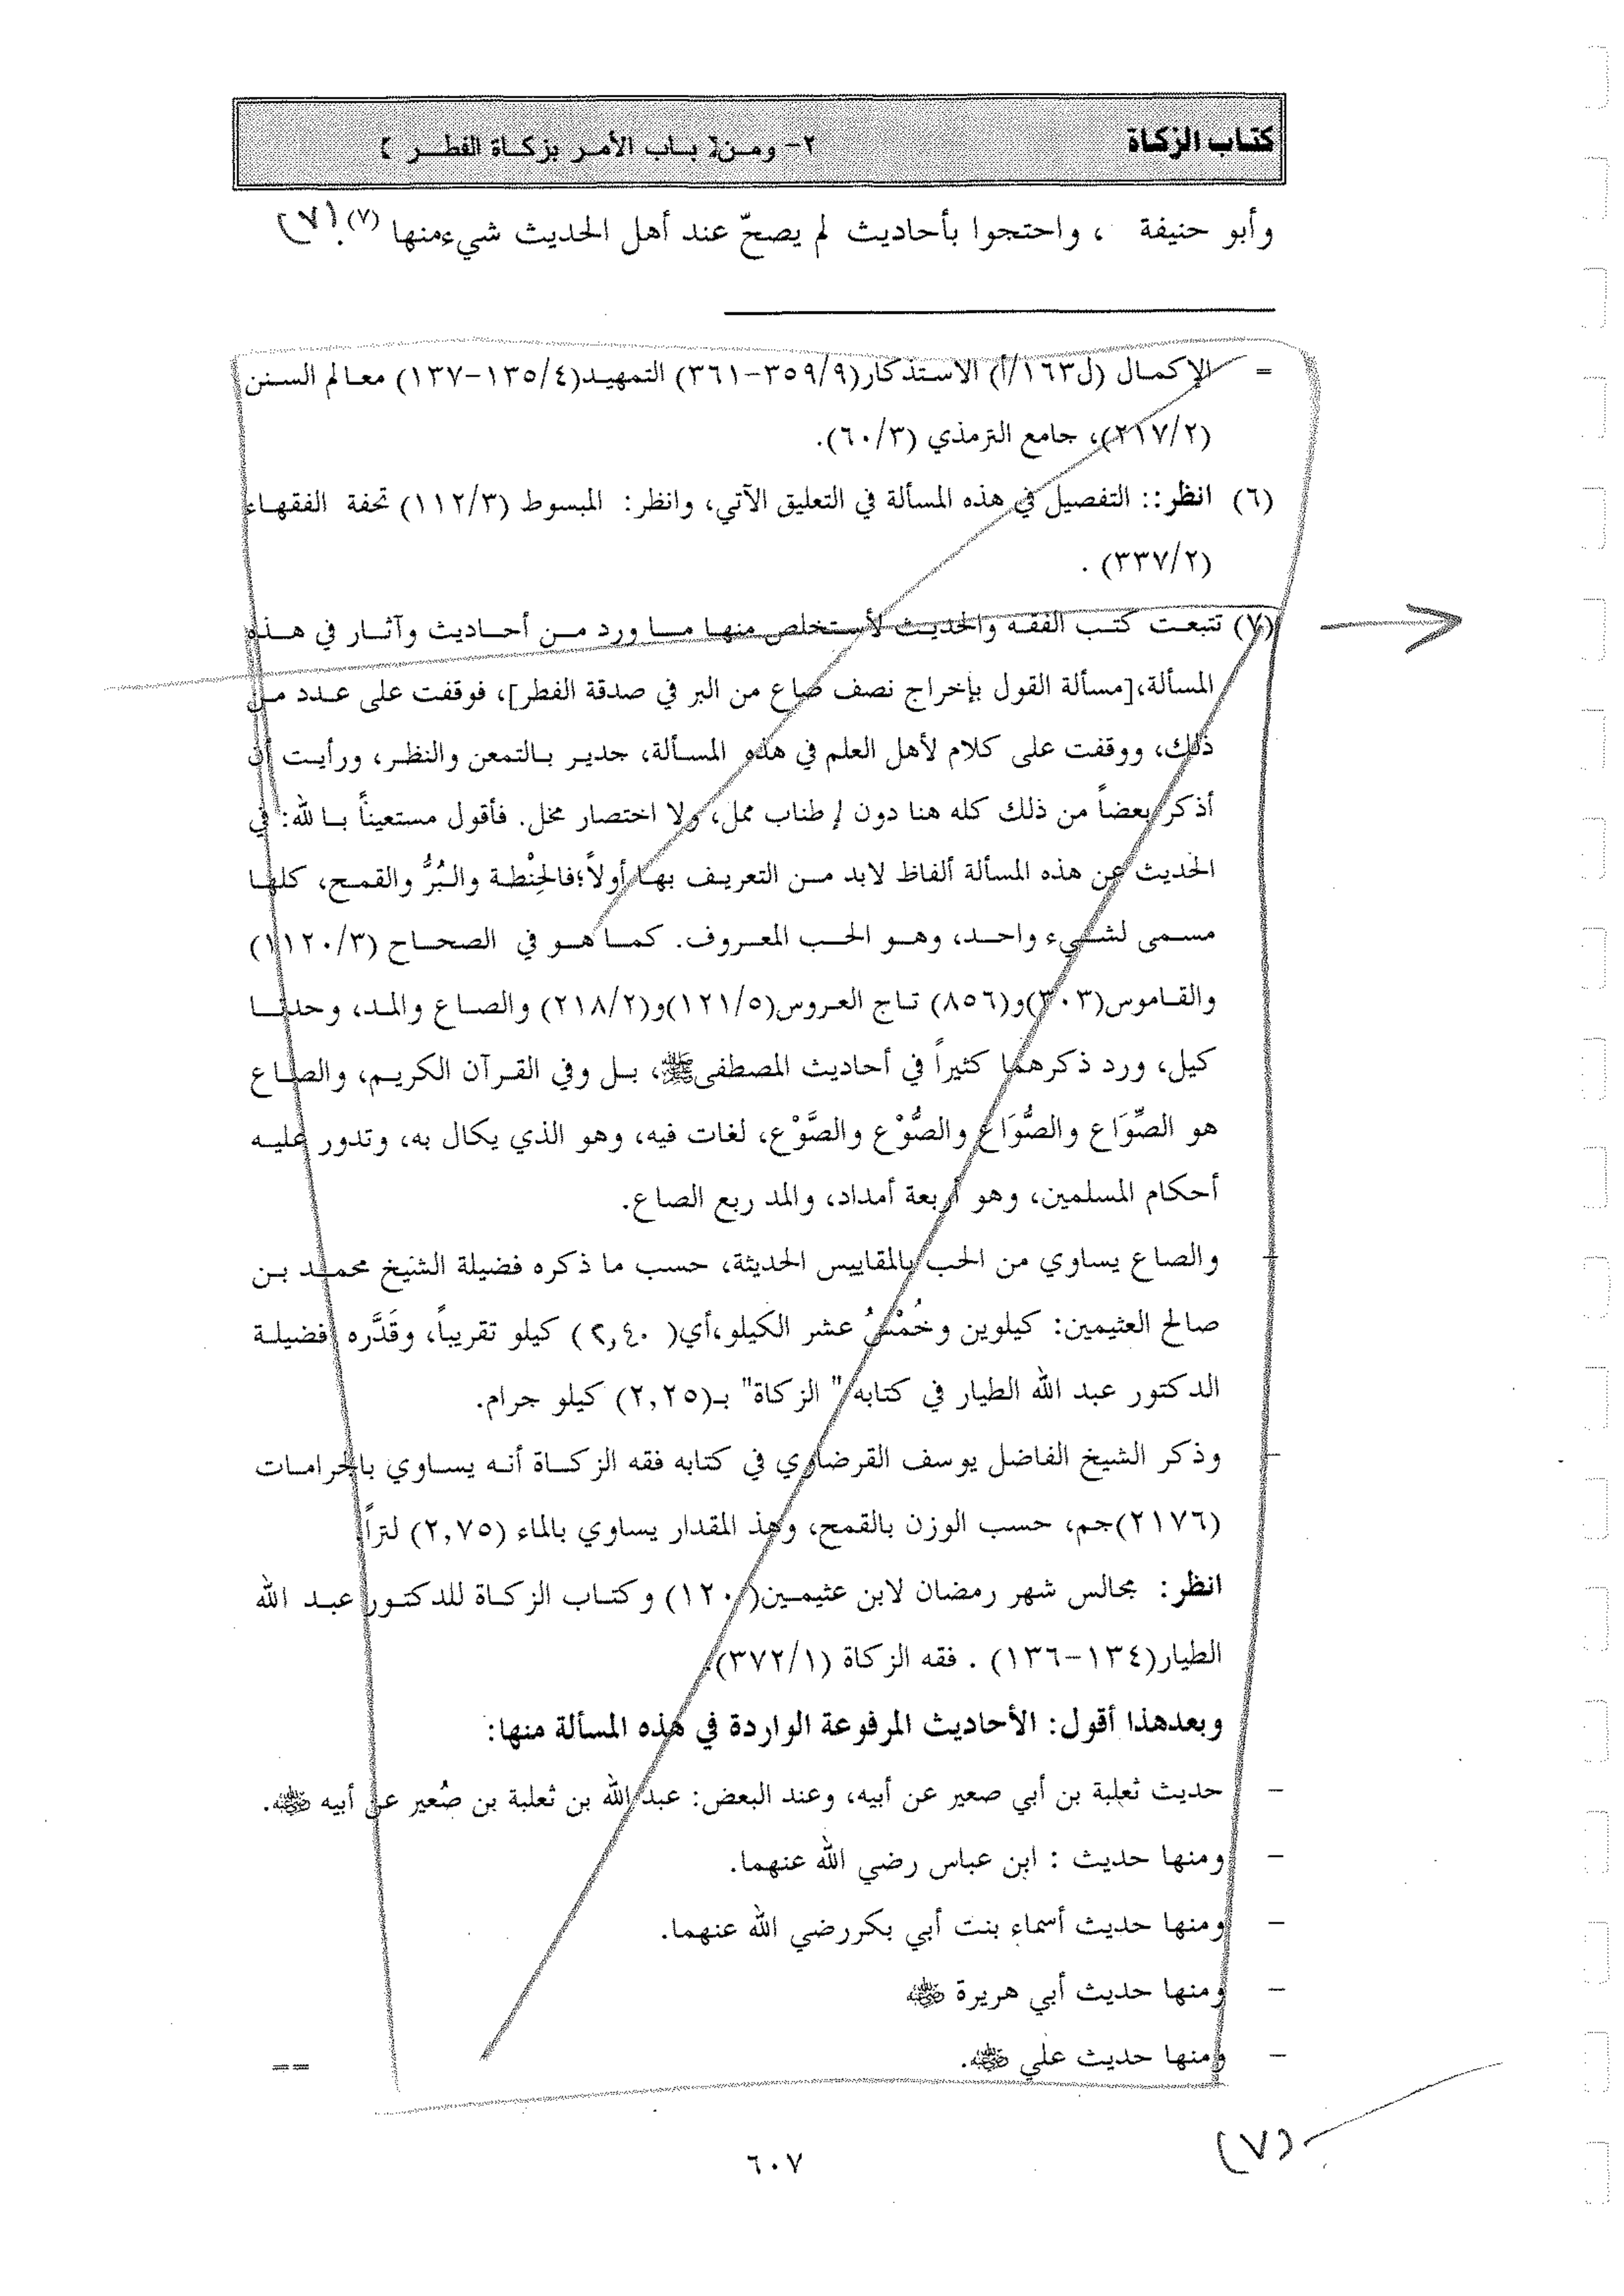 كتاب الزكاة ٢- ومن [ باب الأمر بزكاة الفطر ]
وأبو حنيفة ، واحتجوا بأحاديث لم يصحّ عند أهل الحديث شيءمنها (٧). (٧)
= الإكمال (ل١٦٣/أ) الاستذكار(٣٥٩/٩-٣٦١) التمهيد(١٣٥/٤-١٣٧) معالم السنن
(٢١٧/٢)، جامع الترمذي (٦٠/٣).
(٦) انظر:: التفصيل في هذه المسألة في التعليق الآتي، وانظر: المبسوط (١١٢/٣) تحفة الفقهاء
(٣٣٧/٢) .
(٧) تتبعت كتب الفقه والحديث لأستخلص منها ما ورد من أحاديث وآثار في هذه
المسألة،[مسألة القول بإخراج نصف صاع من البر في صدقة الفطر]، فوقفت على عدد من
ذلك، ووقفت على كلام لأهل العلم في هذه المسألة، جدير بالتمعن والنظر، ورأيت أن
أذكر بعضاً من ذلك كله هنا دون إطناب ممل، ولا اختصار مخل. فأقول مستعيناً بالله: في
الحديث عن هذه المسألة ألفاظ لابد من التعريف بها أولاً؛فالحِنْطة والبُرُّ والقمح، كلها
مسمى لشيء واحد، وهو الحب المعروف. كما هو في الصحاح (١١٢٠/٣)
والقاموس(٣٠٣)و(٨٥٦) تاج العروس(١٢١/٥)و(٢١٨/٢) والصاع والمد، وحدتا
كيل، ورد ذكرهما كثيراً في أحاديث المصطفى ﷺ، بل وفي القرآن الكريم، والصاع
هو الصِّوَاع والصُّوَاع والصُّوْع والصَّوْع، لغات فيه، وهو الذي يكال به، وتدور عليه
أحكام المسلمين، وهو أربعة أمداد، والمد ربع الصاع.
- والصاع يساوي من الحب بالمقاييس الحديثة، حسب ما ذكره فضيلة الشيخ محمد بن
صالح العثيمين: كيلوين وخُمْسُ عشر الكيلو،أي( ٢,٤٠ ) كيلو تقريباً، وقَدَّره فضيلة
الدكتور عبد الله الطيار في كتابه " الزكاة" بـ(٢,٢٥) كيلو جرام.
- وذكر الشيخ الفاضل يوسف القرضاوي في كتابه فقه الزكاة أنه يساوي بالجرامات
(٢١٧٦)جم، حسب الوزن بالقمح، وهذ المقدار يساوي بالماء (٢,٧٥) لتراً.
انظر: مجالس شهر رمضان لابن عثيمين(١٢٠) وكتاب الزكاة للدكتور عبد الله
الطيار(١٣٤-١٣٦) . فقه الزكاة (٣٧٢/١).
وبعدهذا أقول: الأحاديث المرفوعة الواردة في هذه المسألة منها:
- حديث ثعلبة بن أبي صعير عن أبيه، وعند البعض: عبد الله بن ثعلبة بن صُعير عن أبيه ﷺ.
- ومنها حديث : ابن عباس رضي الله عنهما.
- ومنها حديث أسماء بنت أبي بكررضي الله عنهما.
- ومنها حديث أبي هريرة رضي الله عنه
- ومنها حديث علي رضي الله عنه.
==
(٧)
٦٠٧